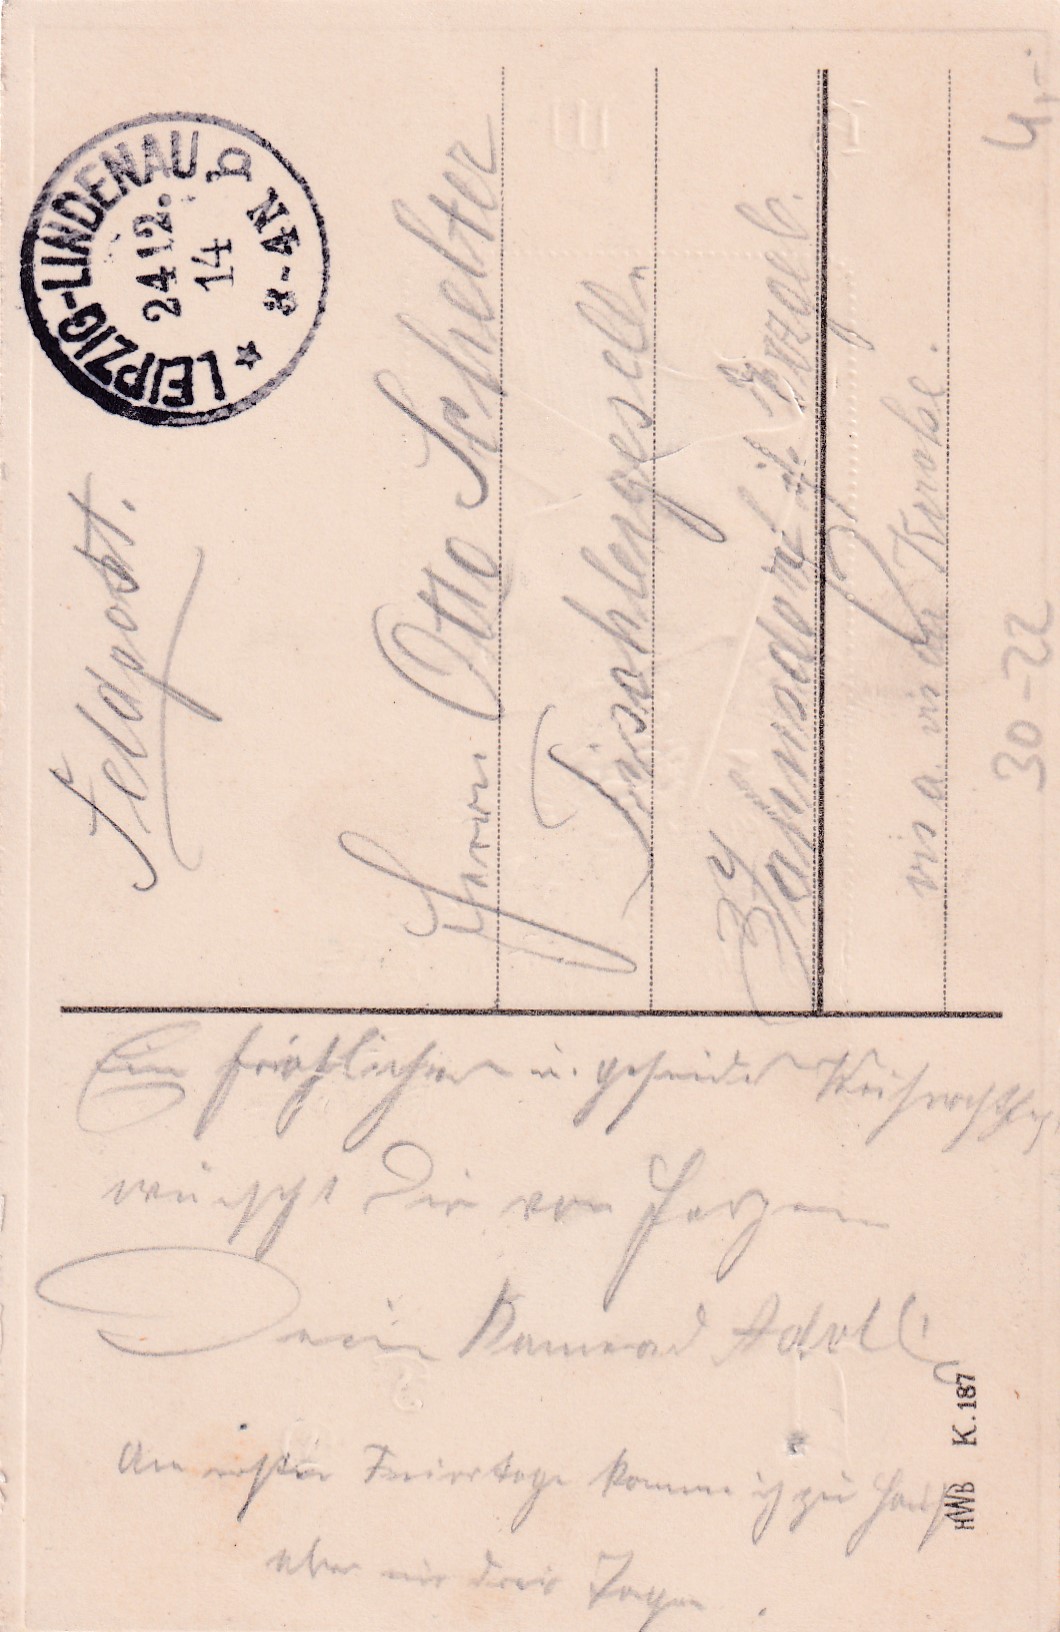 LEIPZIG-LINDENAU
b
24 12.
14
* 3-4N
Feldpost.
Herrn Otto Schelter
Tischlergeselle
Zahnsdorf i. Erzgeb.
vis a. vis der Kirche.
Ein fröhliches u. gesundes Weihnachtsfest
wünscht Dir von Herzen
Dein Kamerad Adolf
Am ersten Feiertage komme ich zu Haus
aber nur drei Tage.
HWB K. 187
30-22
4,-